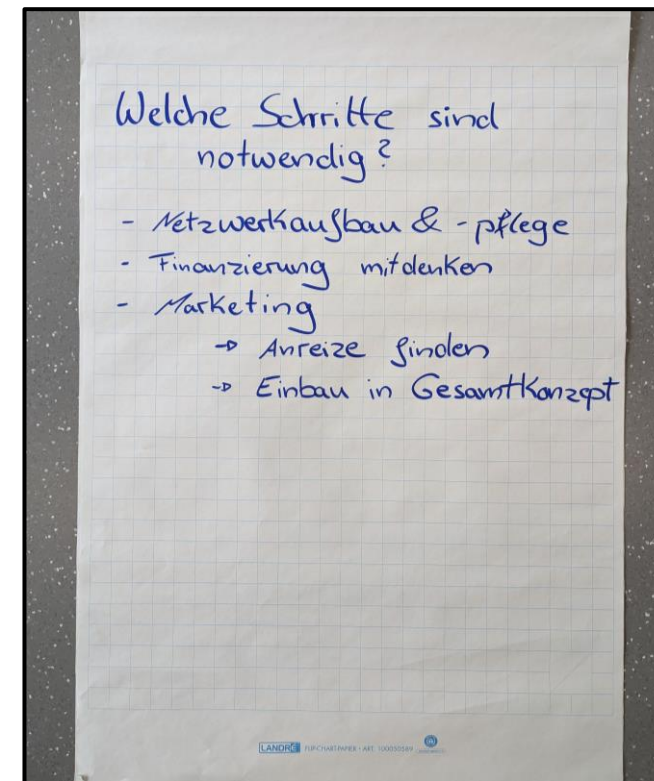 Welche Schritte sind
notwendig?
- Netzwerkaufbau & -pflege
- Finanzierung mitdenken
- Marketing
→ Anreize finden
→ Einbau in Gesamtkonzept
LANDRÉ FLIPCHART-PAPIER • ART. 100050589